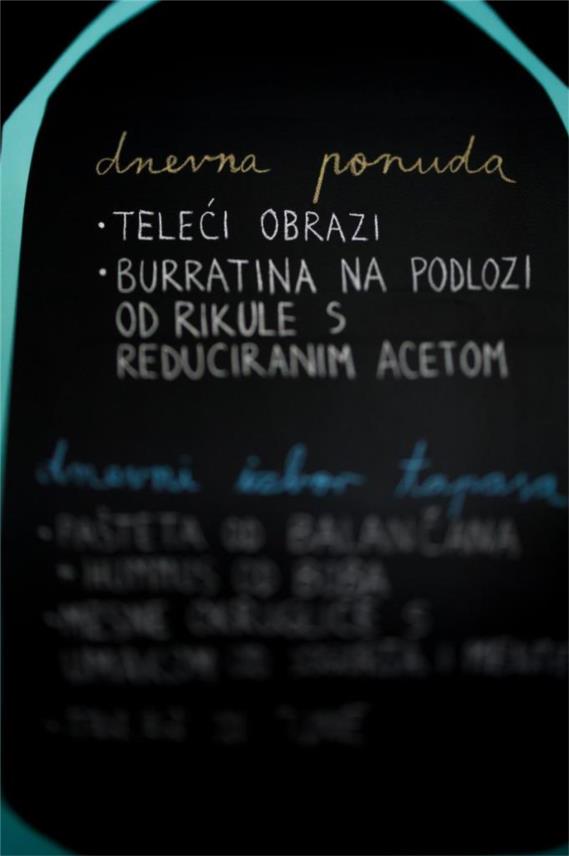 dnevna ponuda
· TELEĆI OBRAZI
· BURRATINA NA PODLOZI
OD RIKULE S
REDUCIRANIM ACETOM
dnevni izbor tapasa
· PAŠTETA OD BALANČANA
· HUMMUS OD BOBA
· MESNE OKRUGLICE S
UMAKOM OD I